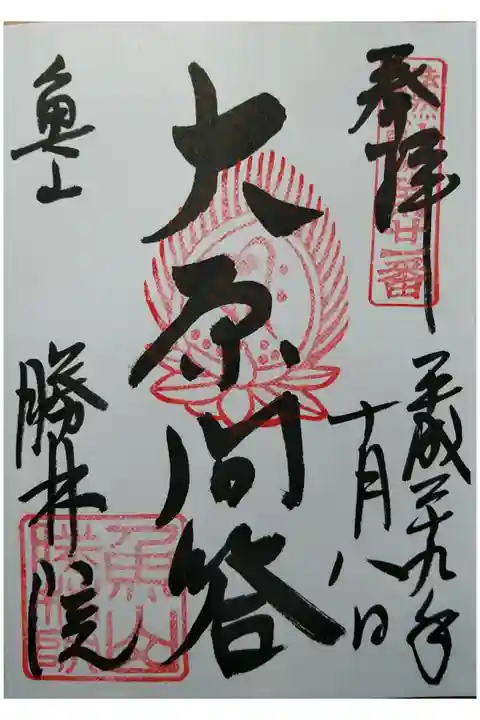 奉拝
廿一番
平成二十九年
十月八日
大原問答
魚山
勝林院
魚山
勝林院